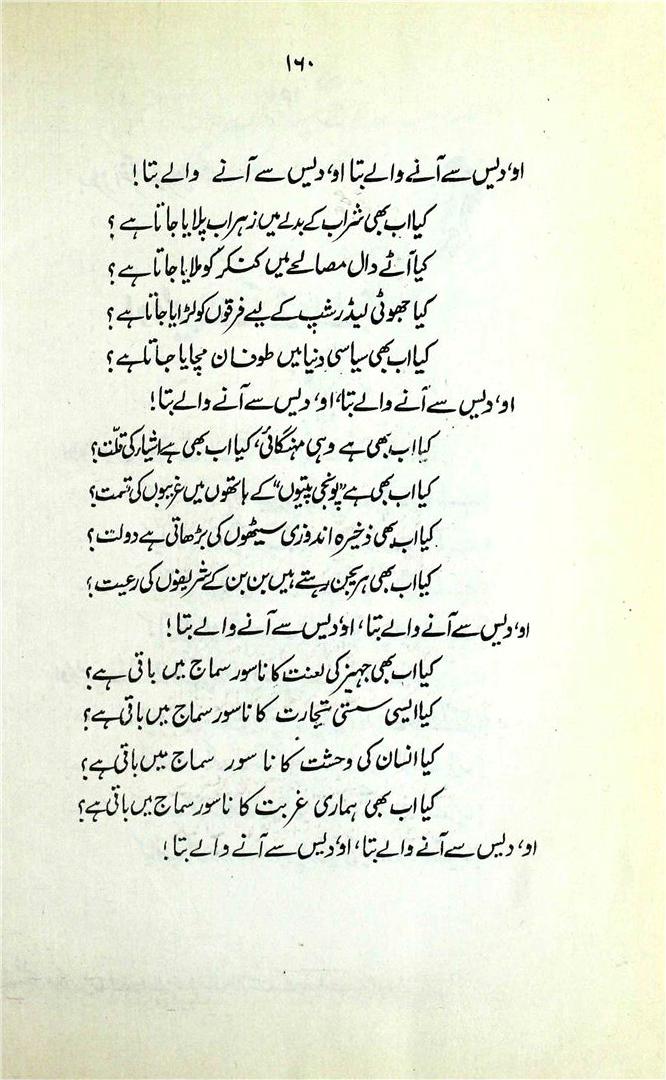 ۱۶۰
او، دیس سے آنے والے بتا او، دیس سے آنے والے بتا!
کیا اب بھی شراب کے بدلے میں زہراب پلایا جاتا ہے؟
کیا آٹے دال مصالحے میں کنکر کو ملایا جاتا ہے؟
کیا جھوٹی لیڈر شپ کے لیے فرقوں کو لڑایا جاتا ہے؟
کیا اب بھی سیاسی دنیا میں طوفان مچایا جاتا ہے؟
او، دیس سے آنے والے بتا، او، دیس سے آنے والے بتا!
کیا اب بھی ہے وہی مہنگائی، کیا اب بھی ہے اشیار کی قلّت؟
کیا اب بھی ہے "پونجی پتیوں" کے ہاتھوں میں غریبوں کی قسمت؟
کیا اب بھی ذخیرہ اندوزی سیٹھوں کی بڑھاتی ہے دولت؟
کیا اب بھی ہریجن رہتے ہیں بن بن کے شریفوں کی رعیت؟
او، دیس سے آنے والے بتا، او، دیس سے آنے والے بتا!
کیا اب بھی جہیز کی لعنت کا ناسور سماج میں باقی ہے؟
کیا ایسی سستی تجارت کا ناسور سماج میں باقی ہے؟
کیا انسان کی وحشت کا ناسور سماج میں باقی ہے؟
کیا اب بھی ہماری غربت کا ناسور سماج میں باقی ہے؟
او، دیس سے آنے والے بتا، او، دیس سے آنے والے بتا!